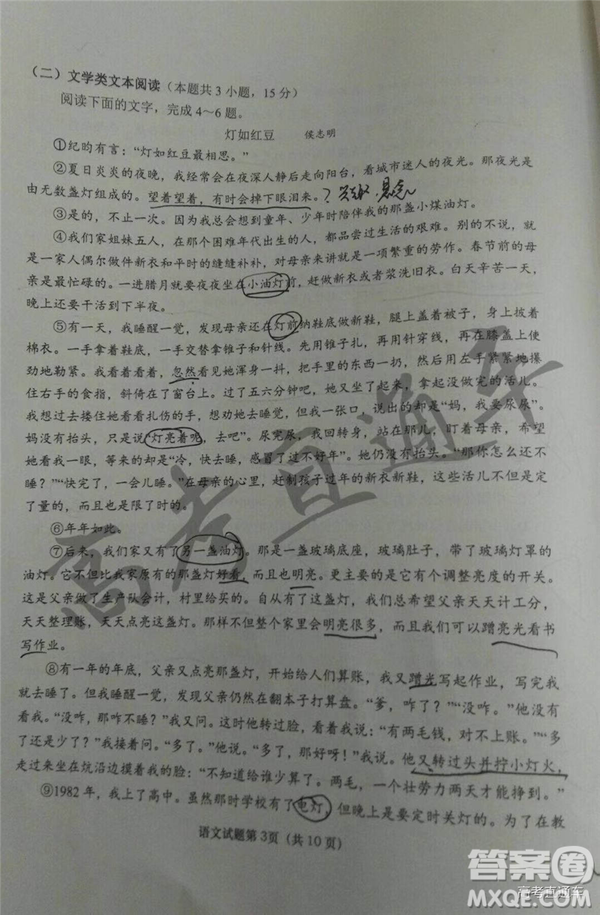 （二）文学类文本阅读（本题共3小题，15分）
阅读下面的文字，完成4～6题。
灯如红豆 侯志明
①纪昀有言：“灯如红豆最相思。”
②夏日炎炎的夜晚，我经常会在夜深人静后走向阳台，看城市迷人的夜光。那夜光是
由无数盏灯组成的。望着望着，有时会掉下眼泪来。？ 悬念
③是的，不止一次。因为我总会想到童年、少年时陪伴我的那盏小煤油灯。
④我们家姐妹五人，在那个困难年代出生的人，都品尝过生活的艰难。别的不说，就
是一家人偶尔做件新衣和平时的缝缝补补，对母亲来讲就是一项繁重的劳作。春节前的母
亲是最忙碌的。一进腊月就要夜夜坐在小油灯前，赶做新衣或者浆洗旧衣。白天辛苦一天，
晚上还要干活到下半夜。
⑤有一天，我睡醒一觉，发现母亲还在灯前纳鞋底做新鞋，腿上盖着被子，身上披着
棉衣。一手拿着鞋底，一手交替拿锥子和针线。先用锥子扎，再用针穿线，再在膝盖上使
劲地勒紧。我看着看着，忽然看见她浑身一抖，把手里的东西一扔，然后用左手紧紧地攥
住右手的食指，斜倚在了窗台上。过了五六分钟吧，她又坐了起来，拿起没做完的活儿。
我想过去搂住她看看扎伤的手，想劝她去睡觉，但我一张口，说出的却是“妈，我要尿尿”。
妈没有抬头，只是说“灯亮着呢，去吧”。尿完尿，我回转身，站在门口，盯着母亲，希望
她看我一眼，等来的却是“冷，快去睡，感冒了过不好年”。妈仍没有抬头。“那你怎么还不
睡？”“快完了，一会儿睡。”在母亲的心里，赶制孩子过年的新衣新鞋，这些活儿不但是定
了量的，而且也是限了时的。
⑥年年如此。
⑦后来，我们家又有了另一盏油灯。那是一盏玻璃底座，玻璃肚子，带了玻璃灯罩的
油灯。它不但比我家原有的那盏灯好看，而且也明亮。更主要的是它有个调整亮度的开关。
这是父亲做了生产队会计，村里给买的。自从有了这盏灯，我们总希望父亲天天计工分，
天天整理账，天天点亮这盏灯。那样不但整个家里会明亮很多，而且我们可以蹭亮光看书
写作业。
⑧有一年的年底，父亲又点亮那盏灯，开始给人们算账，我又蹭光写起作业，写完我
就去睡了。但我睡醒一觉，发现父亲仍然在翻本子打算盘。“爹，咋了？”“没咋。”他没有
看我。“没咋，那咋不睡？”我又问。这时他转过脸，看着我说：“有两毛钱，对不上账。”“多
了还是少了？”我接着问。“多了。”他说。“多了，那好呀！”我说。他又转过头并拧小灯火，
走过来坐在炕沿边摸着我的脸：“不知道给谁少算了。两毛，一个壮劳力两天才能挣到。”
⑨1982年，我上了高中。虽然那时学校有了电灯，但晚上是要定时关灯的。为了在教
语文试题第3页（共10页）
高考直通车
答案圈
MXQE.COM
高考直通车